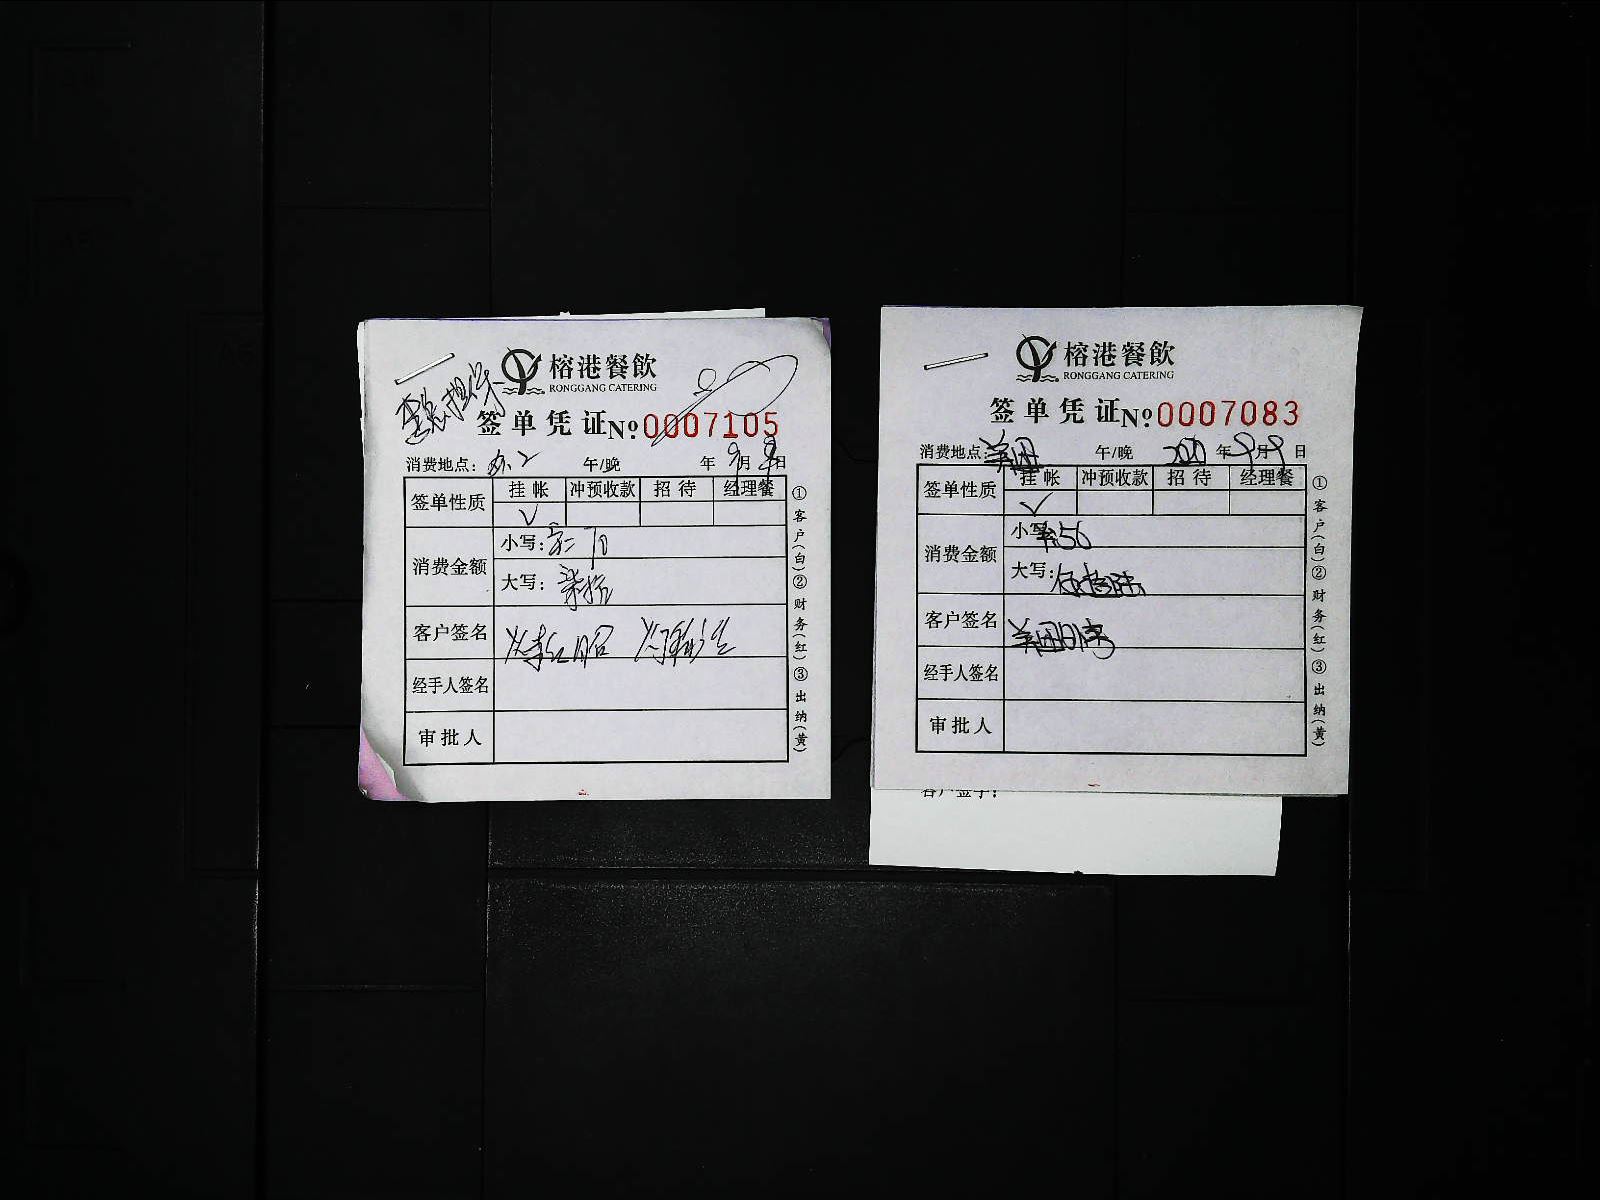 榕港餐飲
RONGGANG CATERING
签单凭证 № 0007105
消费地点： 午/晚 年 9月 9日
签单性质 挂帐 冲预收款 招待 经理餐
✓
消费金额 小写：
大写：
客户签名
经手人签名
审批人
①客户(白)②财务(红)③出纳(黄)
榕港餐飲
RONGGANG CATERING
签单凭证 № 0007083
消费地点：美团 午/晚 年9月9日
签单性质 挂帐 冲预收款 招待 经理餐
✓
消费金额 小写：56
大写：
客户签名 美团
经手人签名
审批人
①客户(白)②财务(红)③出纳(黄)
客户签字：